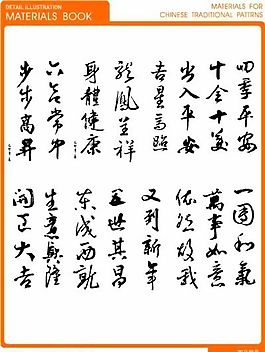 DETAIL ILLUSTRATION
MATERIALS BOOK
MATERIALS FOR
CHINESE TRADITIONAL PATTRNS
四季平安
十全十美
出入平安
吉星高照
龍鳳呈祥
身體健康
六合常中
步步高昇
一團和氣
萬事如意
依然故我
又到新年
五世其昌
東成西就
生意興隆
開 大吉